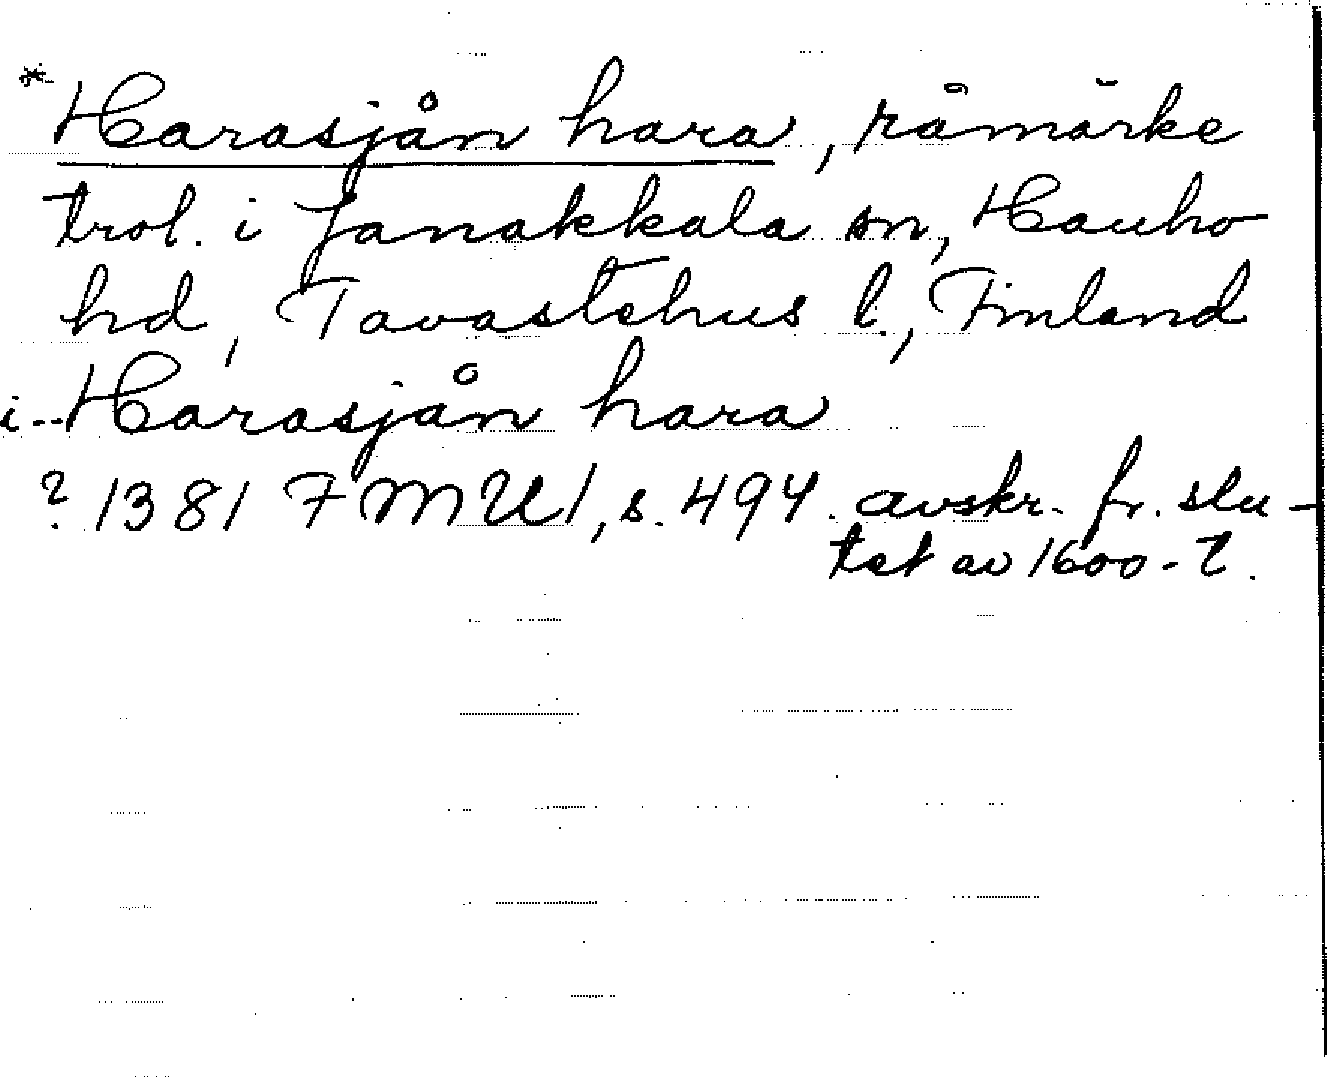 * Harasjån hara, råmärke
trol. i Janakkala sn, Hauho
hd, Tavastehus l., Finland
i--Harasjån hara
? 1381 FMU 1, s. 494. avskr. fr. slu-
tet av 1600-t.